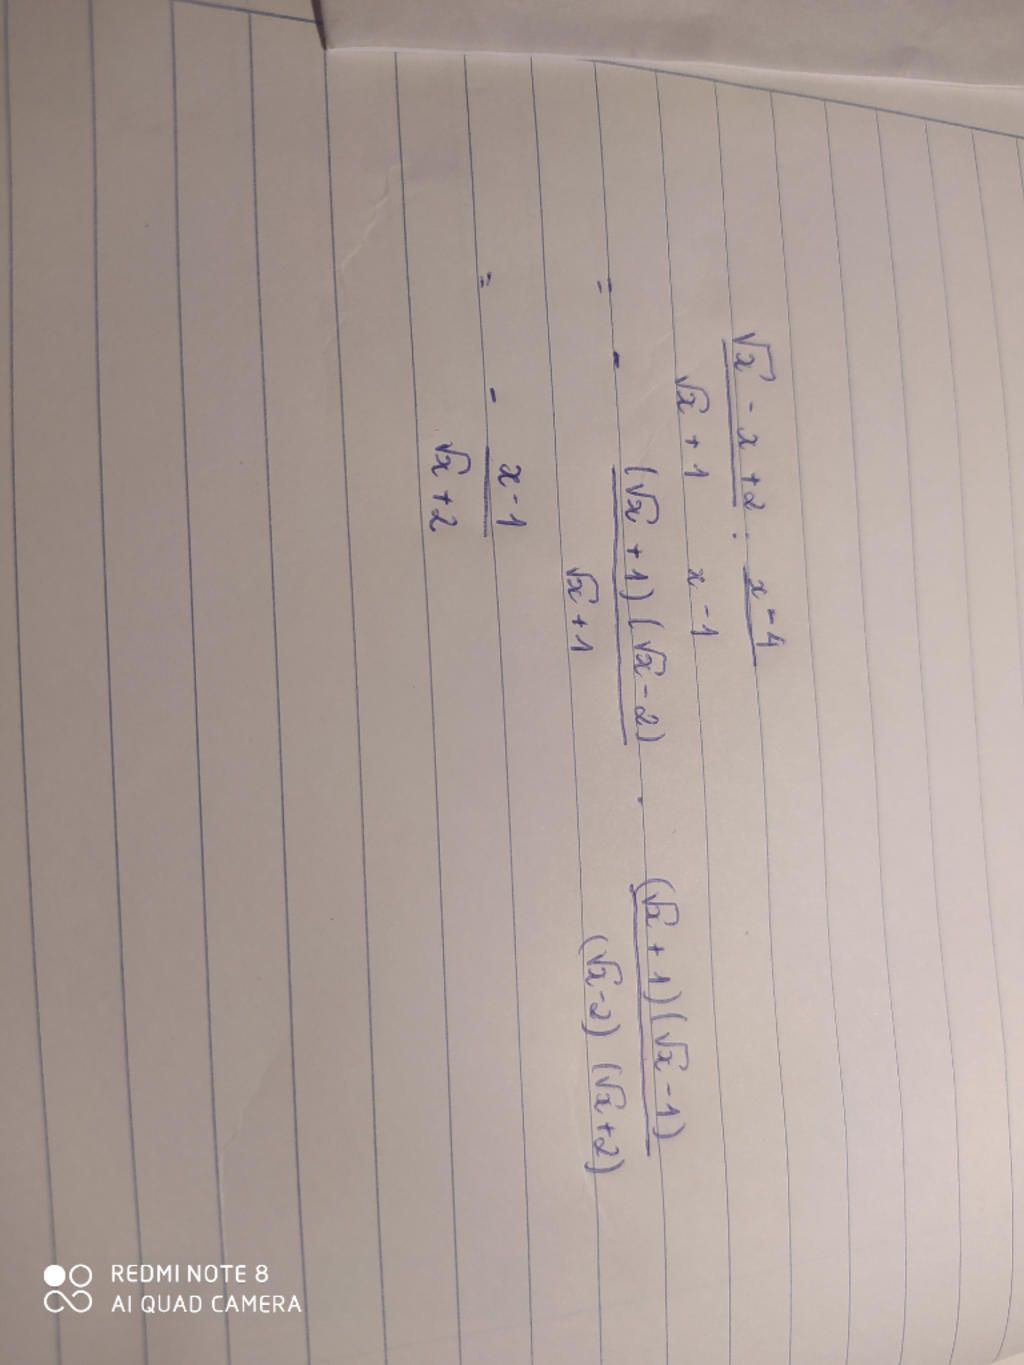 √x - x + 2 : x - 4
√x + 1 x - 1
= - (√x + 1) (√x - 2) . (√x + 1) (√x - 1)
√x + 1 (√x - 2) (√x + 2)
= - x - 1
√x + 2
REDMI NOTE 8
AI QUAD CAMERA